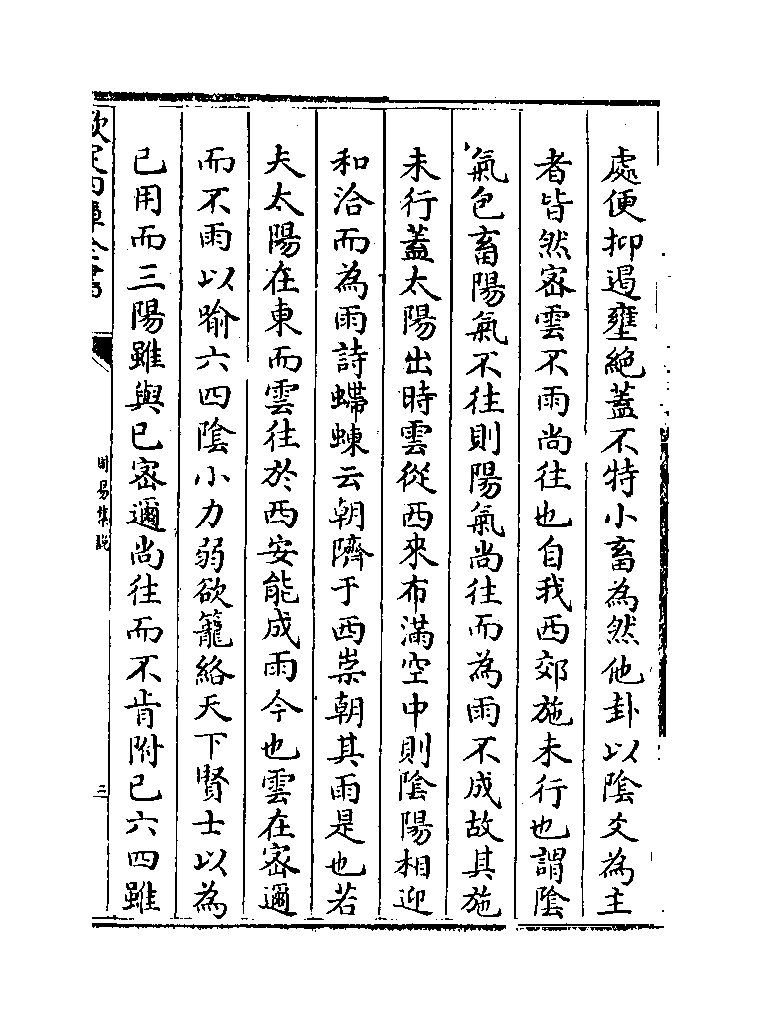 處便抑遏壅絶蓋不特小畜為然他卦以陰爻為主
者皆然密雲不雨尚往也自我西郊施未行也謂陰
氣包畜陽氣不往則陽氣尚往而為雨不成故其施
未行蓋太陽出時雲從西來布滿空中則陰陽相迎
和洽而為雨詩蝃蝀云朝隮于西崇朝其雨是也若
夫太陽在東而雲往於西安能成雨今也雲在密邇
而不雨以喻六四陰小力弱欲籠絡天下賢士以為
已用而三陽雖與已密邇尚往而不肯附已六四雖
欽定四庫全書
周易集說
三